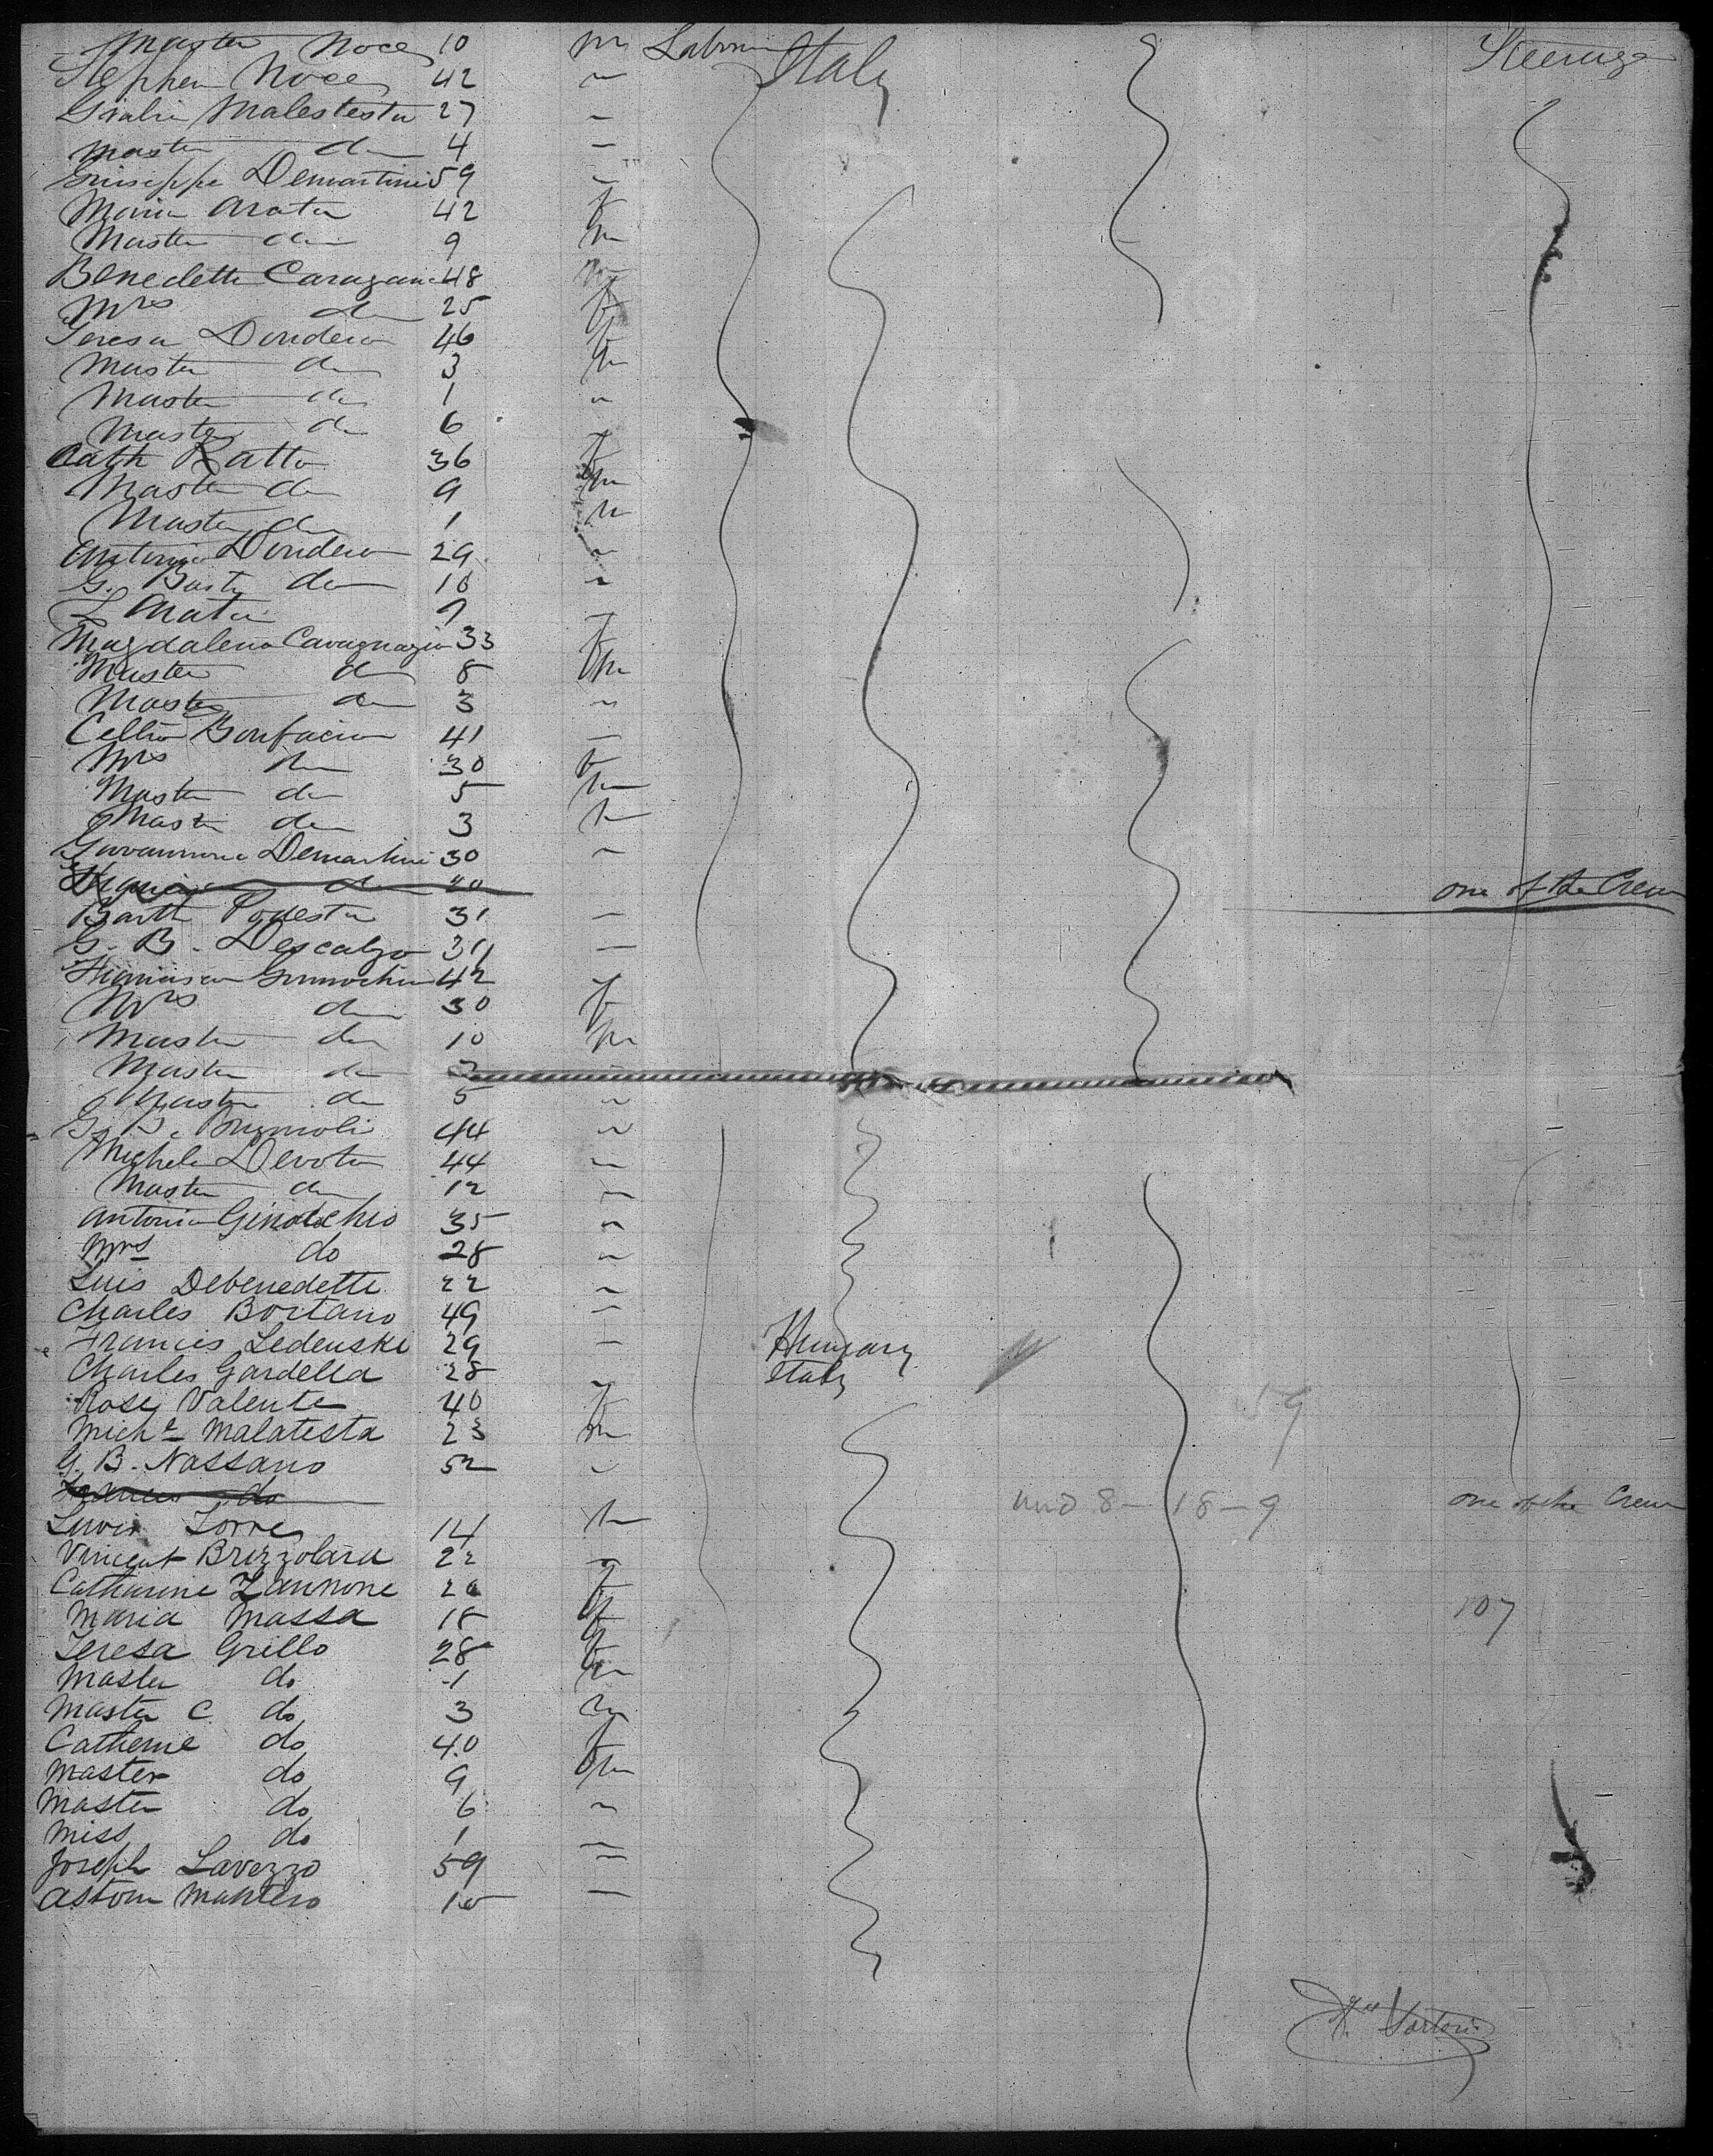 Master Noce 10 m Laborer Italy Steerage
Stephen Noce 42 "
Malestesta 27 "
Master do 4 "
Giuseppe Demartini 59 "
Maria Arata 42 f
Master do 9 m
Benedetto 48 m
Mrs do 25 f
Teresa Dondero 46 f
Master do 3 m
Master do 1 "
Master do 6 "
Cath Ratto 36 f
Master do 9 m
Master do 1 m
Antonio Dondero 29 "
G. do "
Arata "
Magdalena Cavagnaro 33 f
Master do 8 m
Master do 3 "
Bonfacio 41 "
Mrs do 30 f
Master do 5 m
Master do 3 m
Demartini 30 "
do 20 one of the Crew
Barth Podesta 31 "
G. B. Descalzo "
42
Mrs do 30 f
Master do 10 m
Master do
Master do 5 "
44 "
Michele Devoto 44 "
Master do 12 "
Antonio Ginocchio 35 "
Mrs do 28 "
Luis Debenedetti 22 "
Charles Bortano 49 "
Francis Ledenski 29 " Hungary
Charles Gardella 28 " Italy
Rose Valente 40 f 59
Miche Malatesta 23 m
G. B. Nassano 52 "
Francis do 8 - 18 - 9 one of the Crew
Torre 14 m
Vincent Brizzolara 22 "
Catharine Zannone f
Maria Massa 18 f 107
Teresa Grillo 28 f
Master do 1 m
Master C do 3 m
Catherine do 40 f
Master do 9 m
Master do 6 "
Miss do 1 "
Joseph Lavezzo 59 "
Mantero "
Sartori